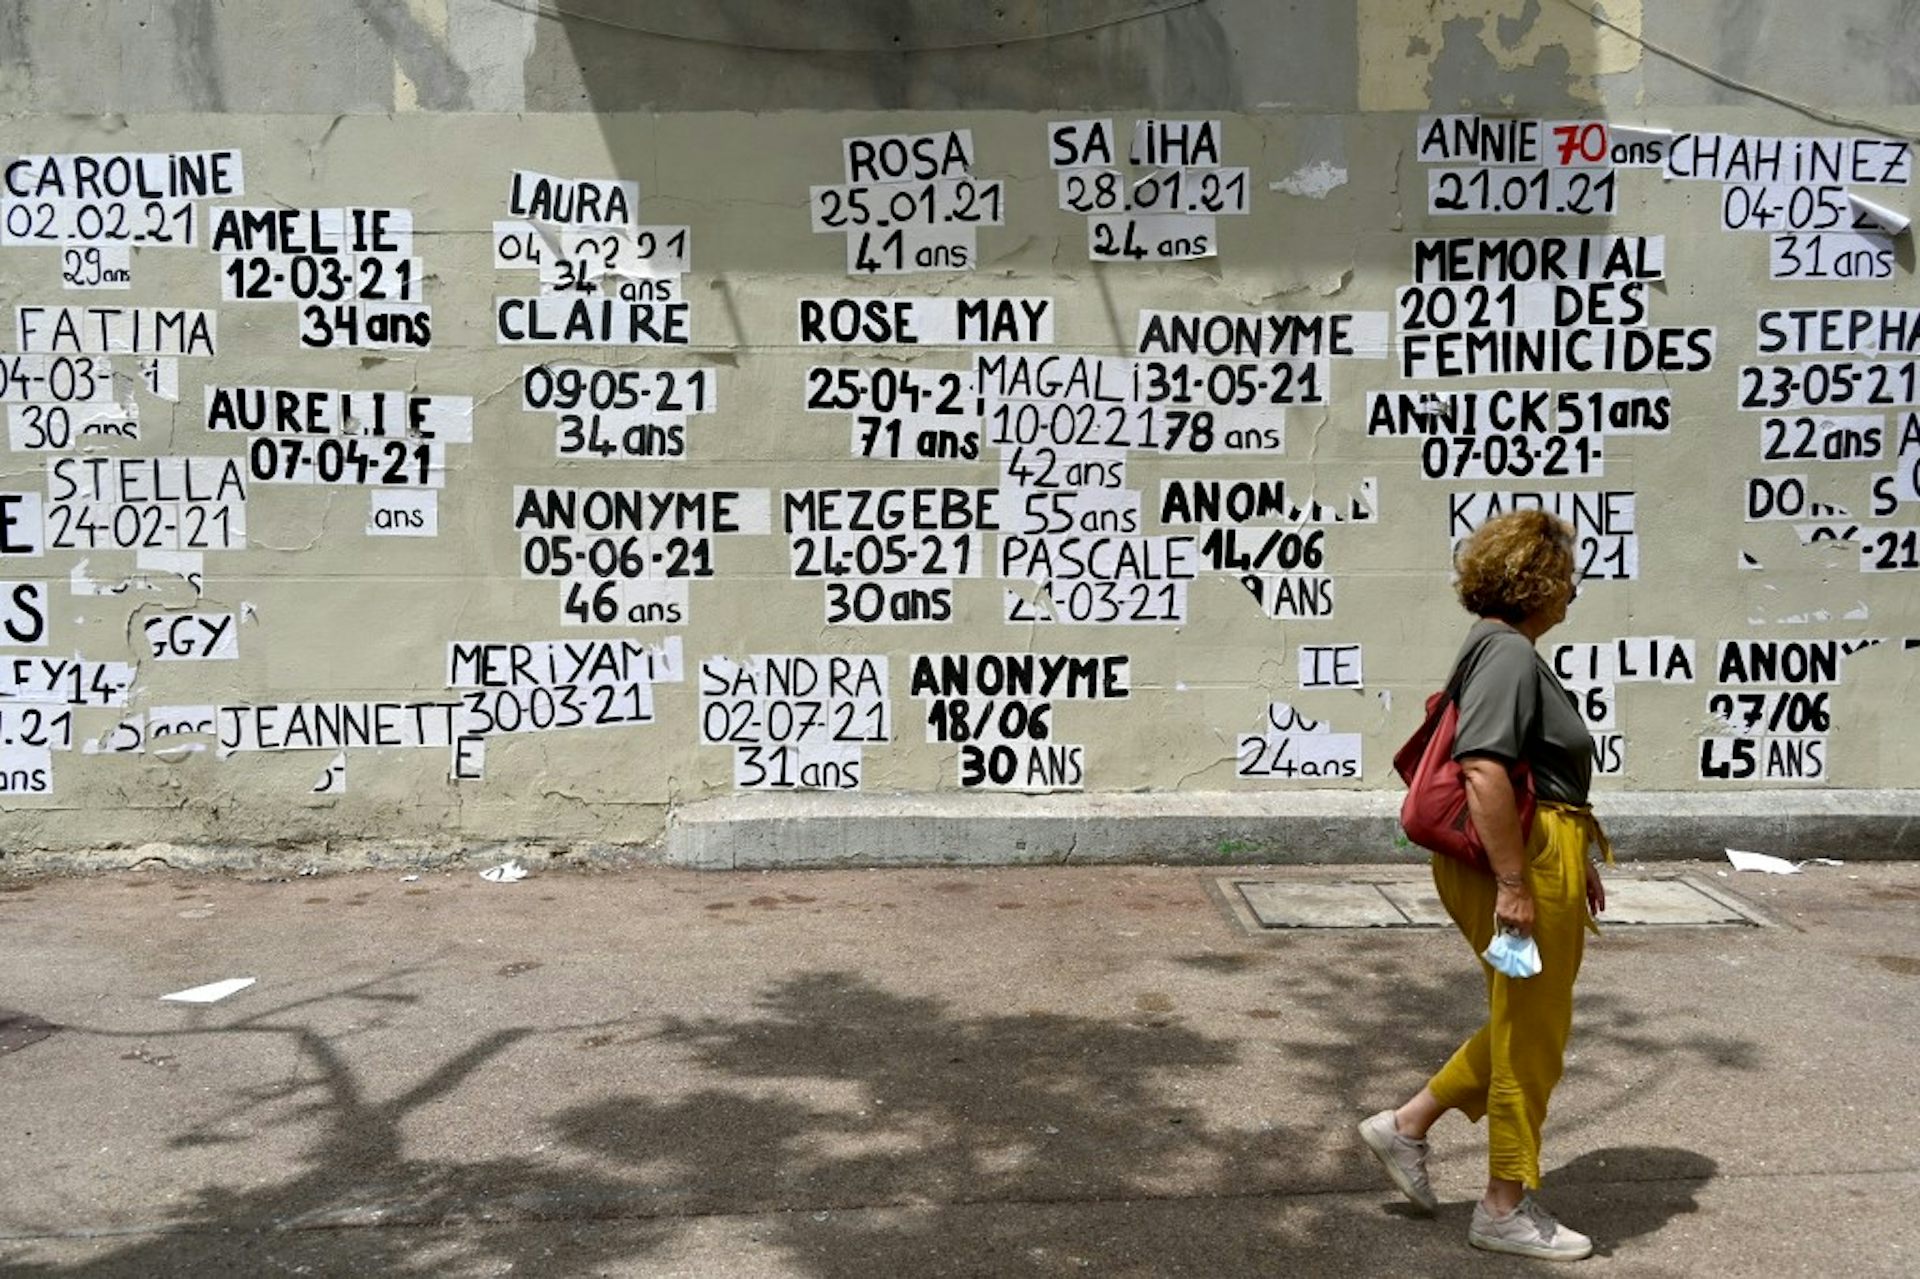 CAROLiNE
02.02.21
29ans
AMELIE
12-03-21
34ans
FATIMA
04-03-
30 ans
AURELIE
07-04-21
ans
STELLA
24-02-21
E
S
GGY
EY14-
.21
ans
5 ans
JEANNETTE
LAURA
04 02 21
34 ans
CLAIRE
09-05-21
34 ans
ANONYME
05-06-21
46 ans
MERiYAM
30-03-21
ROSA
25.01.21
41 ans
ROSE MAY
25-04-21
71 ans
MEZGEBE
24-05-21
30ans
SANDRA
02-07-21
31ans
ANONYME
18/06
30 ANS
SALiHA
28.01.21
24 ans
MAGALi
10-02-21
42ans
ANONYME
31-05-21
78 ans
55ans
PASCALE
-03-21
14/06
ANS
IE
24ans
ANNIE 70 ans
21.01.21
MEMORIAL
2021 DES
FEMINICIDES
ANNICK 51ans
07-03-21-
KARINE
21
CILIA
6
NS
CHAHiNEZ
04-05-2
31ans
STEPHA
23-05-21
22ans
A
DO S
-21
ANONY
27/06
45 ANS